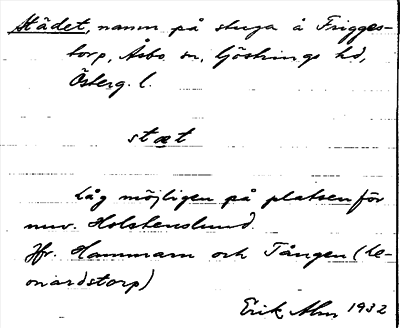 Städet, namn på stuga å Frigges-
torp, Åsbo sn, Göstrings hd,
Österg. l.
stæt
Låg möjligen på platsen för
nuv. Holstenslund.
Jfr. Hammarn och Tången (Le-
onardstorp)
Erik Alm 1932